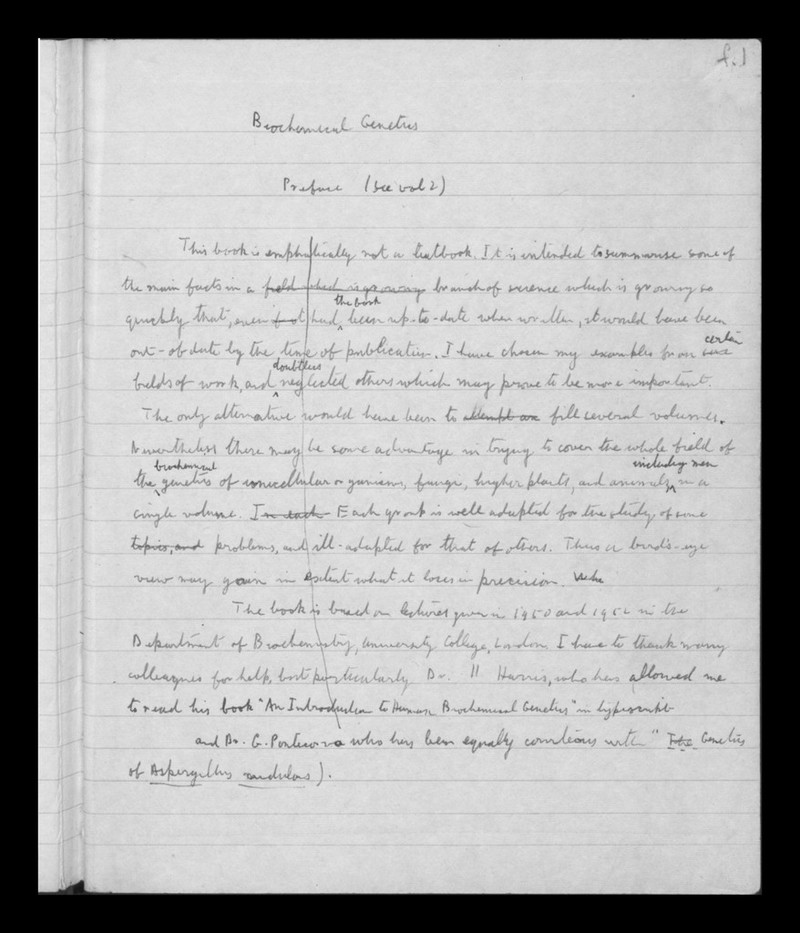 f.1
Biochemical Genetics
Preface (see vol 2)
This book is emphatically not a textbook. It is intended to summarise some of
the main facts in a field which is growing branch of science which is growing so
quickly that, even had the book been up-to-date when written, it would have been
out-of-date by the time of publication. I have chosen my examples from certain
fields of work, and doubtless neglected others which may prove to be more important.
The only alternative would have been to attempt an fill several volumes.
Nevertheless there may be some advantage in trying to cover the whole field of
the biochemical genetics of unicellular organisms, fungi, higher plants, and animals including man in a
single volume. In each Each group is well adapted for the study of some
topics, and problems, and ill-adapted for that of others. Thus a bird's-eye
view may gain in extent what it loses in precision.
The book is based on lectures given in 1950 and 1952 in the
Department of Biochemistry, University College, London. I have to thank many
colleagues for help, but particularly Dr. H Harris, who has allowed me
to read his book "An Introduction to Human Biochemical Genetics" in typescript
and Dr. G. Pontecorvo who has been equally courteous with "The Genetics
of Aspergillus nidulans).